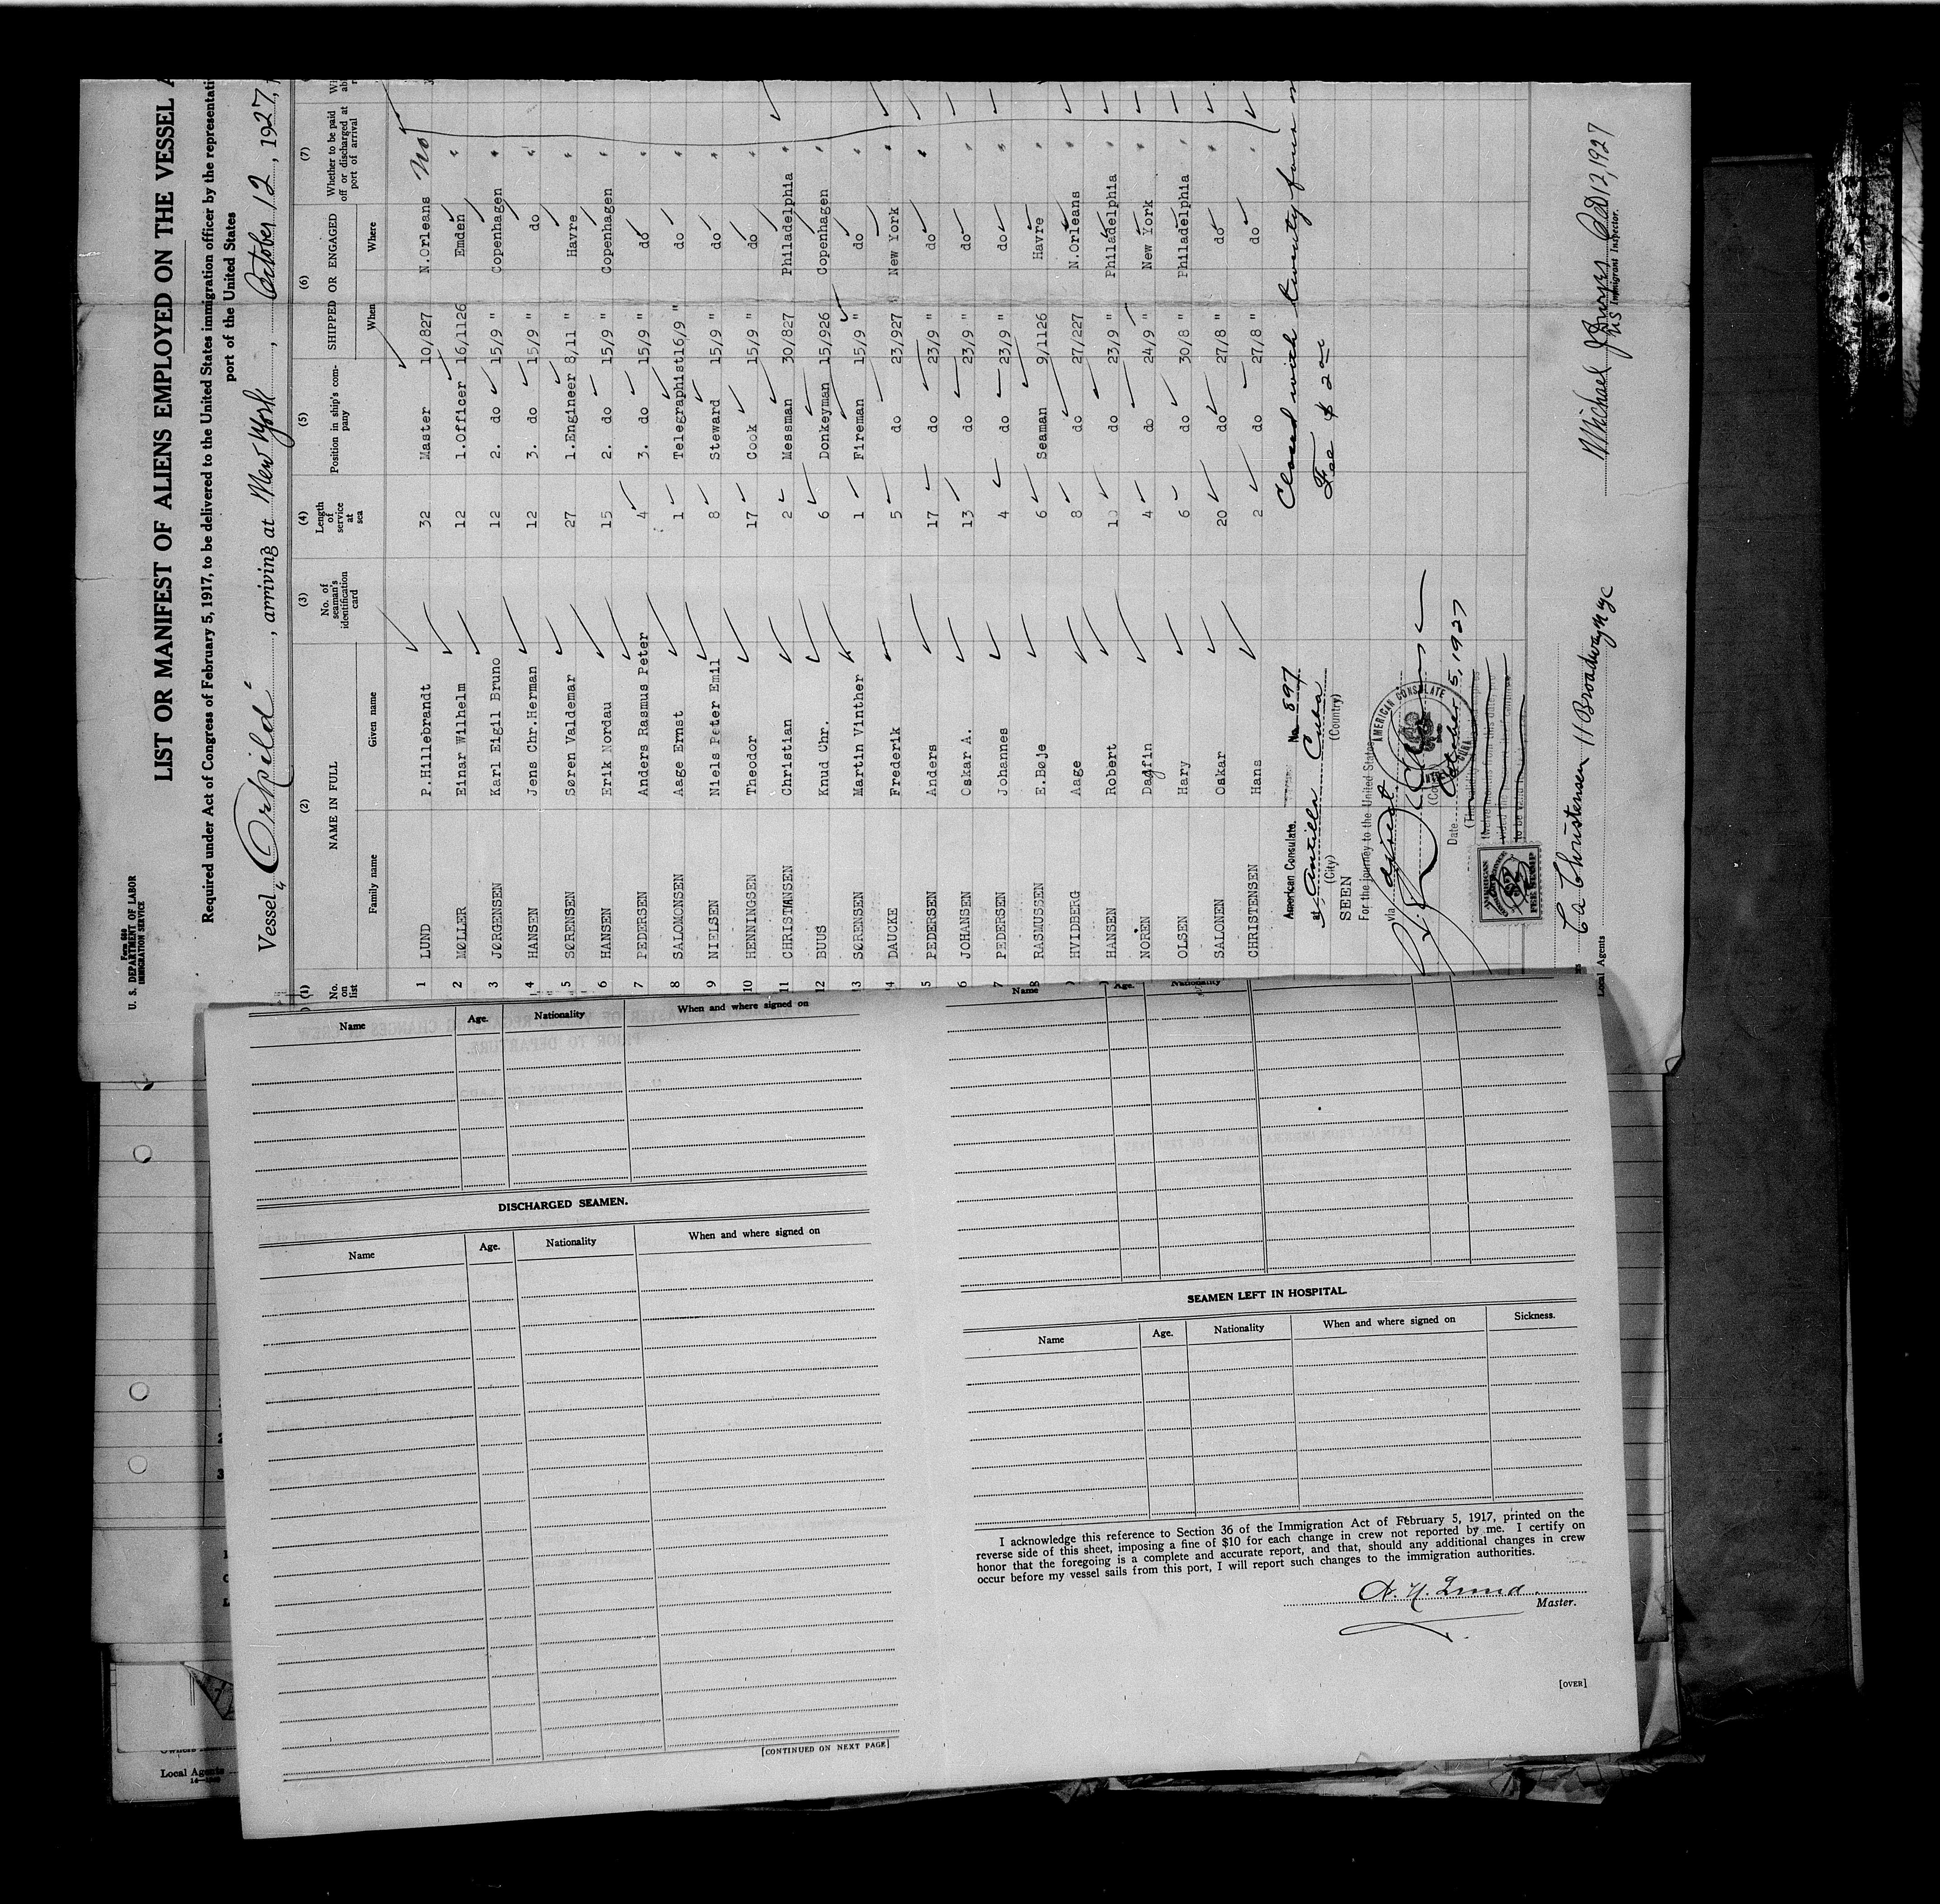 Form 680
U. S. DEPARTMENT OF LABOR
IMMIGRATION SERVICE
LIST OR MANIFEST OF ALIENS EMPLOYED ON THE VESSEL A
Required under Act of Congress of February 5, 1917, to be delivered to the United States immigration officer by the representati
port of the United States
Vessel, arriving at New York, October 12, 1927,
(1) (2) (3) (4) (5) (6) (7)
No. on list NAME IN FULL No. of seaman's identification card Length of service at sea Position in ship's company SHIPPED OR ENGAGED Whether to be paid off or discharged at port of arrival
Family name Given name When Where
1 LUND P.Hillebrandt 32 Master 10/827 N.Orleans No
2 MØLLER Einar Wilhelm 12 1.Officer 16/1126 Emden "
3 JØRGENSEN Karl Eigil Bruno 12 2. do 15/9 " Copenhagen "
4 HANSEN Jens Chr.Herman 12 3. do 15/9 " do "
5 SØRENSEN Søren Valdemar 27 1.Engineer 8/11 " Havre "
6 HANSEN Erik Nordau 15 2. do 15/9 " Copenhagen "
7 PEDERSEN Anders Rasmus Peter 4 3. do 15/9 " do "
8 SALOMONSEN Aage Ernst 1 Telegraphist 16/9 " do "
9 NIELSEN Niels Peter Emil 8 Steward 15/9 " do "
10 HENNINGSEN Theodor 17 Cook 15/9 " do "
11 CHRISTIANSEN Christian 2 Messman 30/827 Philadelphia "
12 BUUS Knud Chr. 6 Donkeyman 15/926 Copenhagen "
13 SØRENSEN Martin Vinther 1 Fireman 15/9 " do "
14 DAUCKE Frederik 5 do 23/927 New York "
5 PEDERSEN Anders 17 do 23/9 " do "
6 JOHANSEN Oskar A. 13 do 23/9 " do "
7 PEDERSEN Johannes 4 do 23/9 " do "
8 RASMUSSEN E.Bøje 6 Seaman 9/1126 Havre "
HVIDBERG Aage 8 do 27/227 N.Orleans "
HANSEN Robert 10 do 23/9 " Philadelphia "
NOREN Dagfin 4 do 24/9 " New York "
OLSEN Hary 6 do 30/8 " Philadelphia "
SALONEN Oskar 20 do 27/8 " do "
CHRISTENSEN Hans 2 do 27/8 " do "
Closed with twenty four
Fee $ 2.00
American Consulate. No 897
at Antilla Cuba
(City) (Country)
SEEN
For the journey to the United States
via direct
AMERICAN CONSULATE
CUBA
Date October 5, 1927
AMERICAN
$2
FEE STAMP
C a Christensen 11 Broadway NYC
Local Agents
Michael Oct 12, 1927
Immigrant Inspector.
Name Age. Nationality When and where signed on
DISCHARGED SEAMEN.
Name Age. Nationality When and where signed on
[CONTINUED ON NEXT PAGE]
Name Age. Nationality
SEAMEN LEFT IN HOSPITAL.
Name Age. Nationality When and where signed on Sickness.
I acknowledge this reference to Section 36 of the Immigration Act of February 5, 1917, printed on the
reverse side of this sheet, imposing a fine of $10 for each change in crew not reported by me. I certify on
honor that the foregoing is a complete and accurate report, and that, should any additional changes in crew
occur before my vessel sails from this port, I will report such changes to the immigration authorities.
Lund
Master.
[OVER]
Local Agents